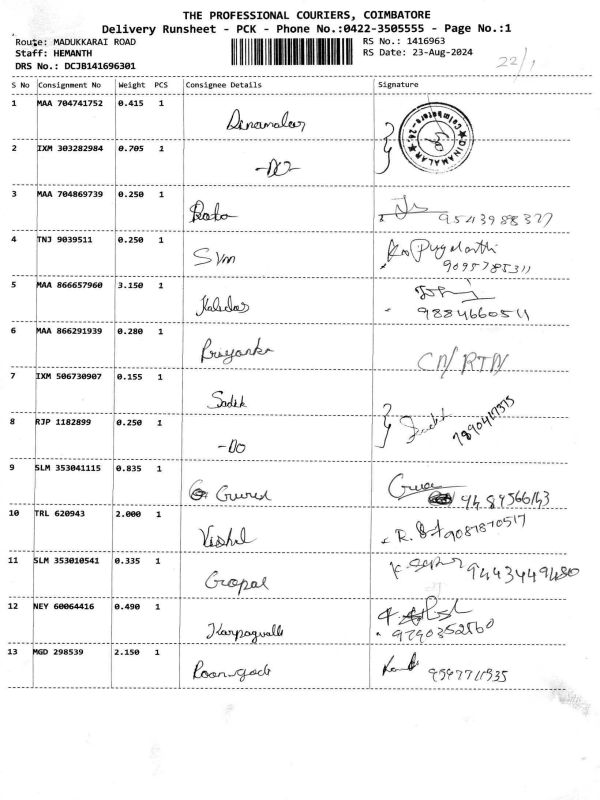 THE PROFESSIONAL COURIERS, COIMBATORE
Delivery Runsheet - PCK - Phone No.:0422-3505555 - Page No.:1
Route: MADUKKARAI ROAD RS No.: 1416963
Staff: HEMANTH RS Date: 23-Aug-2024
DRS No.: DCJB141696301 22/1
S No Consignment No Weight PCS Consignee Details Signature
1 MAA 704741752 0.415 1 Dinamalar DINAMALAR Coimbatore-24.
2 IXM 303282984 0.705 1 -DO-
3 MAA 704869739 0.250 1 9543988327
4 TNJ 9039511 0.250 1 SVM 9095785311
5 MAA 866657960 3.150 1 9884660511
6 MAA 866291939 0.280 1 Priyanka CN/RTN
7 IXM 506730907 0.155 1 Sadik
8 RJP 1182899 0.250 1 -DO 7890417375
9 SLM 353041115 0.835 1
10 TRL 620943 2.000 1 Vishal 9087870517
11 SLM 353010541 0.335 1 Gopal 9443449480
12 NEY 60064416 0.490 1 9790352560
13 MGD 298539 2.150 1